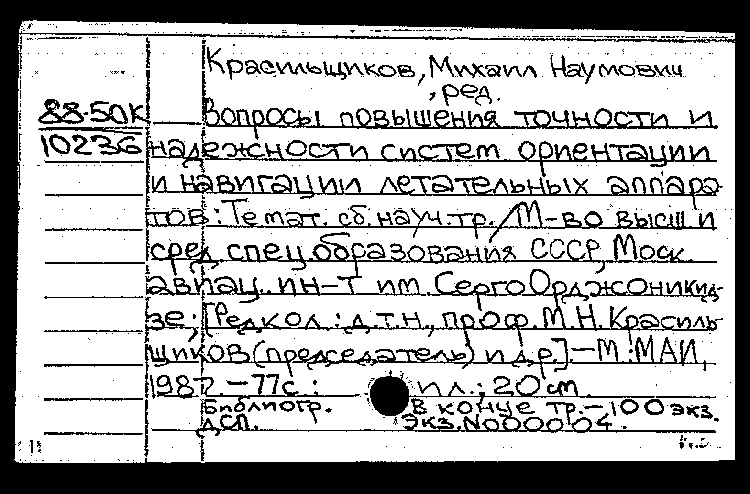 Красильщиков, Михаил Наумович
, ред.
88-50К
10236
Вопросы повышения точности и
надежности систем ориентации
и навигации летательных аппара-
тов: Темат. сб. науч. тр. / М-во высш и
сред. спец. образования СССР, Моск.
авиац. ин-т им. Серго Орджоникид-
зе; [Редкол.: д.т.н., проф. М.Н. Красиль-
щиков (председатель) и др.]. – М.: МАИ,
1987. – 77с.: ил.; 20 см
Библиогр. в конце тр. – 100 экз.
ДСП. Экз. N000004.